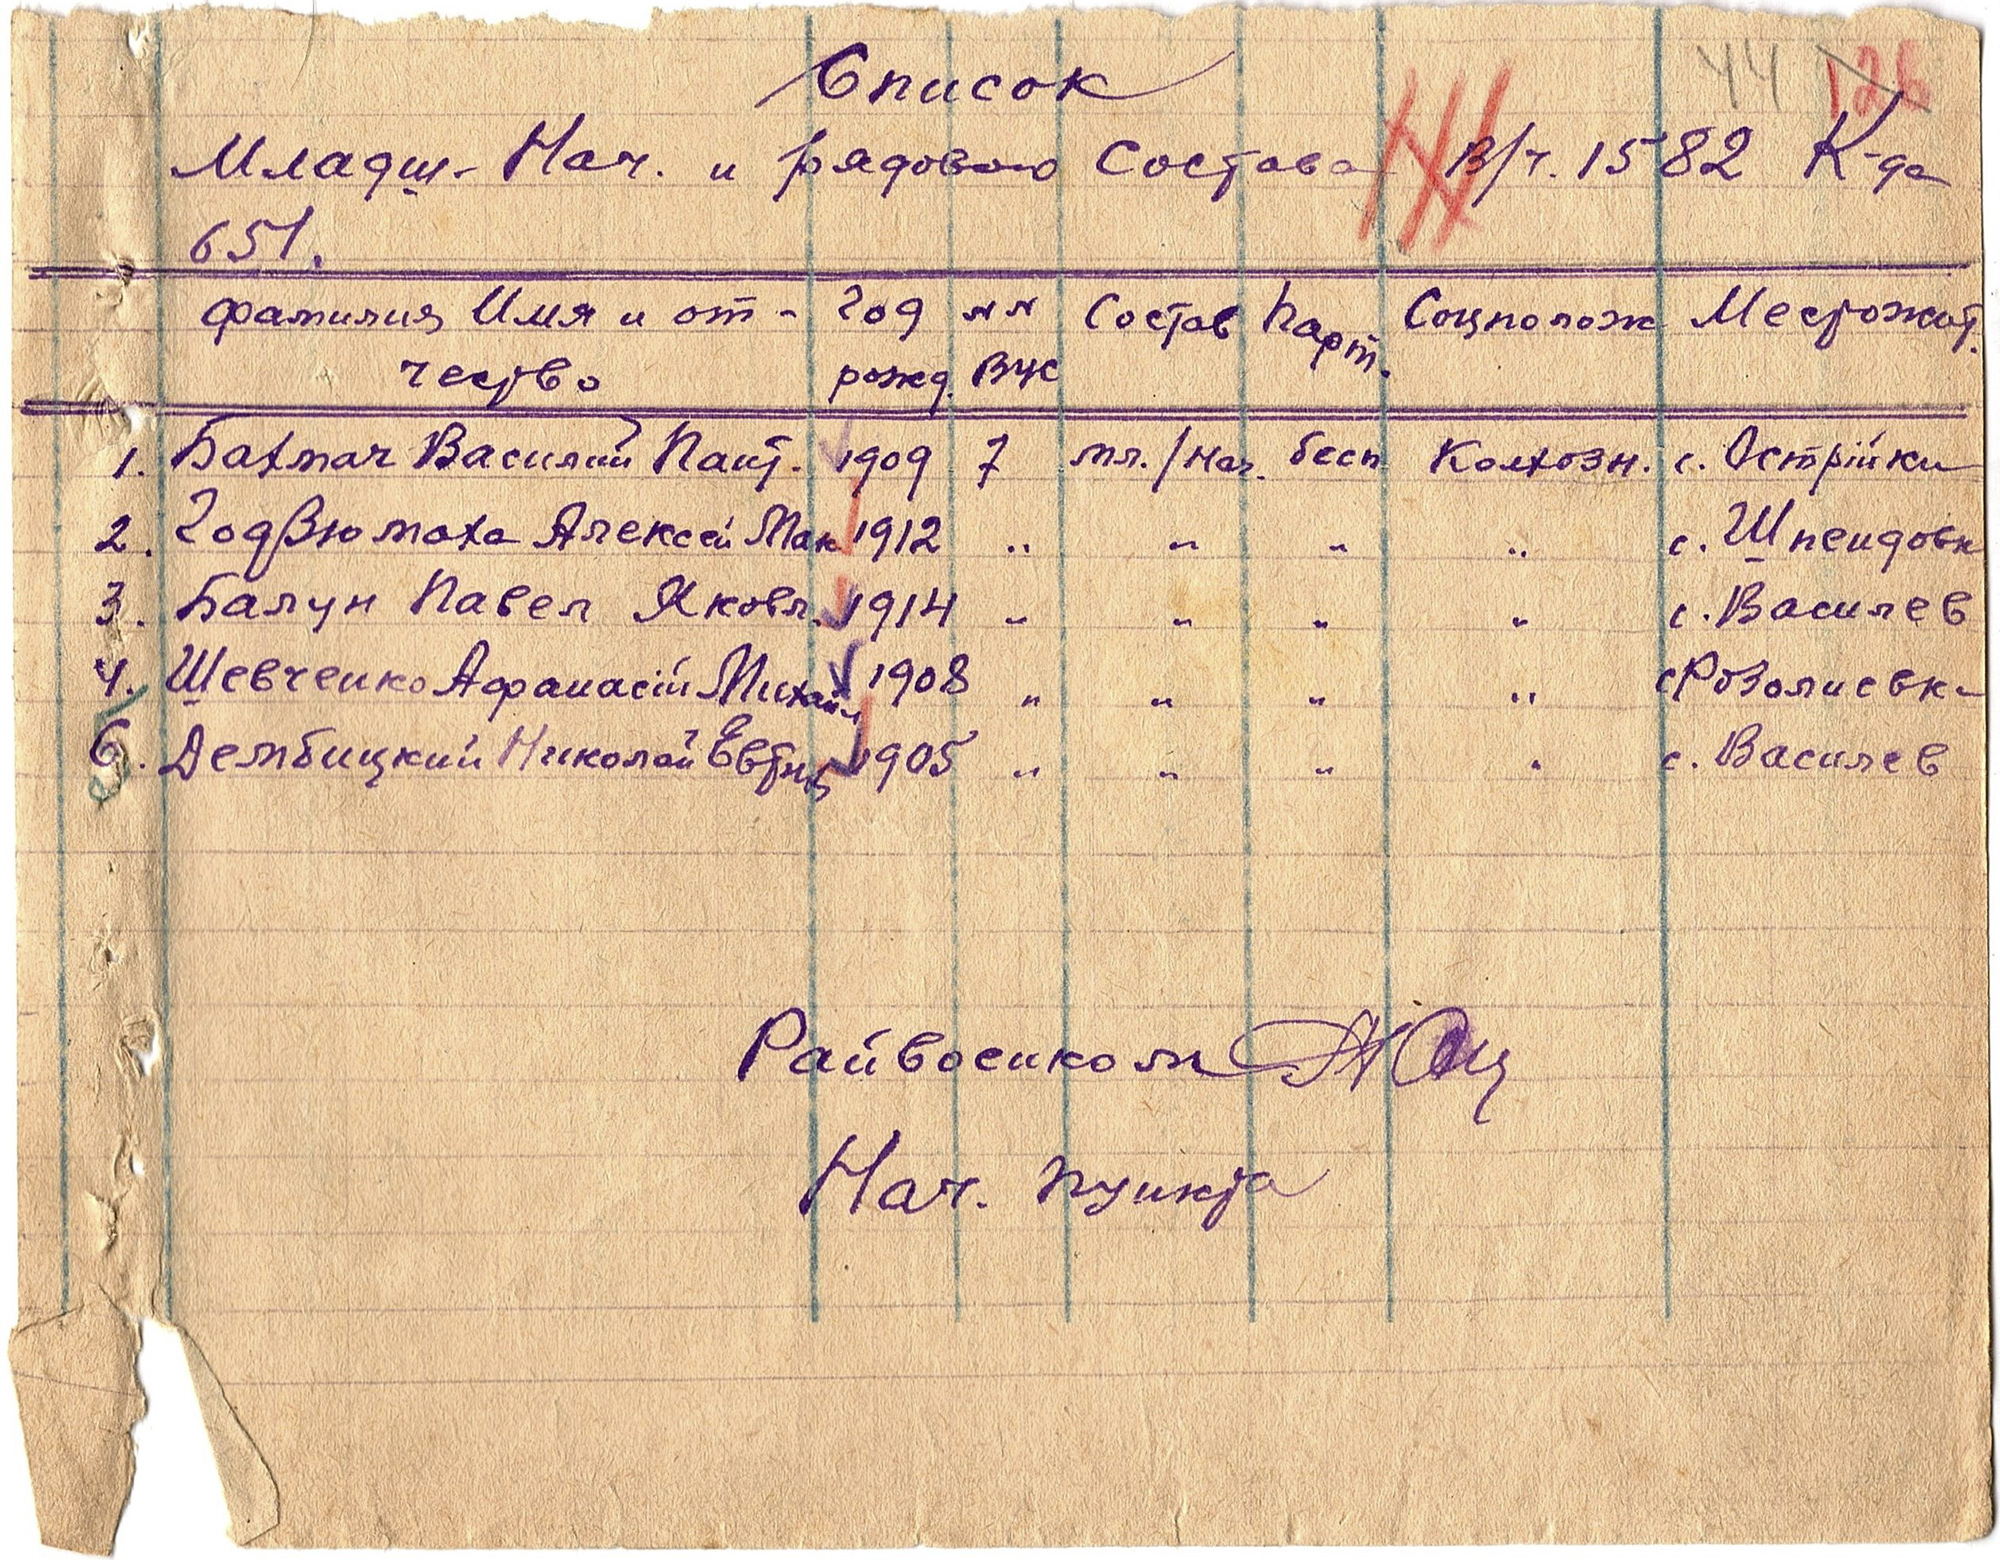 44 126
Список
Младш. Нач. и рядового Состава В/ч. 1582 К-да
651.
фамилия Имя и от- Год №№ Состав Парт. Соцполож Местожит.
чество рожд. ВУС
1. Бахмач Василий Пант. 1909 7 мл./Нач. бесп Колхозн. с. Острійки
2. Годзюмаха Алексей Мак 1912 " " " " с. Шпендовк
3. Балун Павел Яковл. 1914 " " " " с. Василев
4. Шевченко Афанасій Михайл 1908 " " " " с Розолиевка
6. Дембицкий Николай 1905 " " " " с. Василев
Райвоенком
Нач. пункта